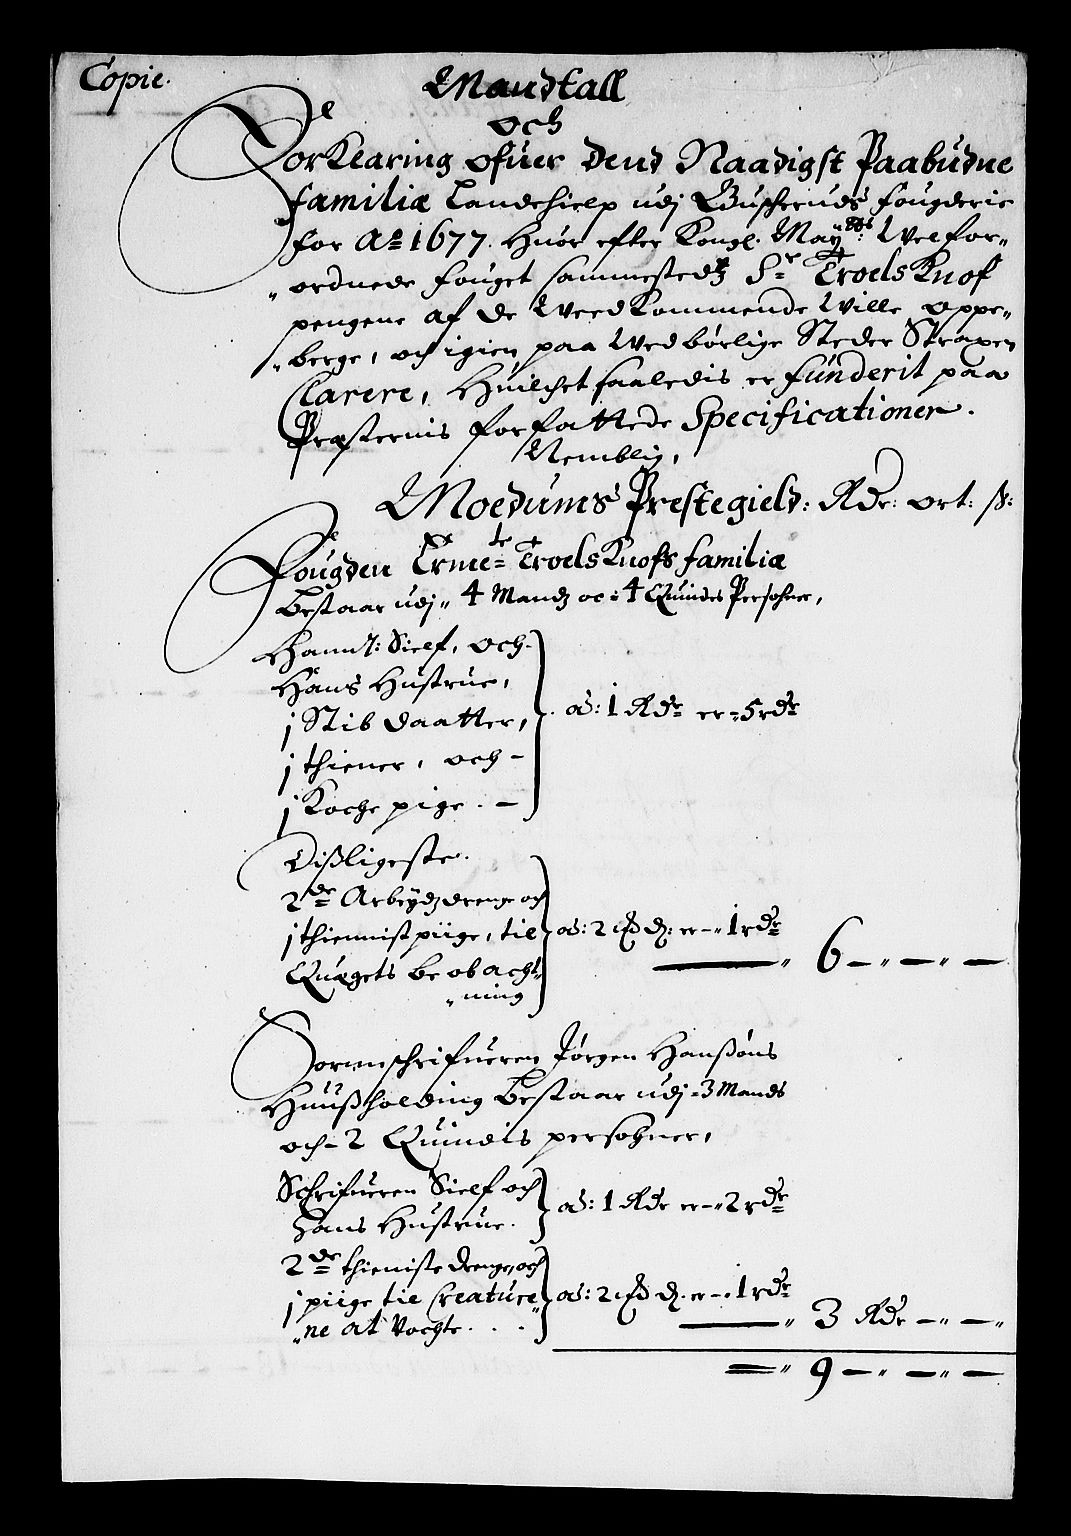 Copie.
Mandtall
och
Forklaring ofuer dend Naadigst Paabudne
familiæ Landehielp udj Buscheruds fougderie
for Ao 1677. Huor efter Kongl. Mayds: Welfor-
ordnede fouget sammestedz Sr Troels Knof
pengene af de Wedkommende Wille oppe-
berge, och igien paa Wedbørlige Steder Straxen
Clarere, Huilchet saaledis er funderit paa
Præsternis forfattede Specificationer.
Nemblig,
Moedums Prestegield: Rdr: ort: ß:
Fougden Erme: Troels Knofs familiæ
Bestaar udj 4 Mandz oc 4 Quindes Persohner,
Hannd: Sielf, och
Hans Hustrue,
j Stib daatter,
j thiener, och
j Koche pige. } ad: 1 Rdr er 5 rdr
Dißligeste.
2de Arbeydz drenge och
j thiennist piige, til
Quegets be obacht-
ning } ad: 2 ... er 1 rdr 6
Sorenschrifueren Jørgen Hanßøns
Huußholding Bestaar udj 3 Mands
och 2 Quindis persohner,
Schrifueren Sielf och
hans Hustrue. } ad: 1 Rdr er 2 rdr
2de thieniste drenge, och
j piige til Creature-
ne at Vochte. } ad: 2 ... er 1 rdr 3 Rdr
9